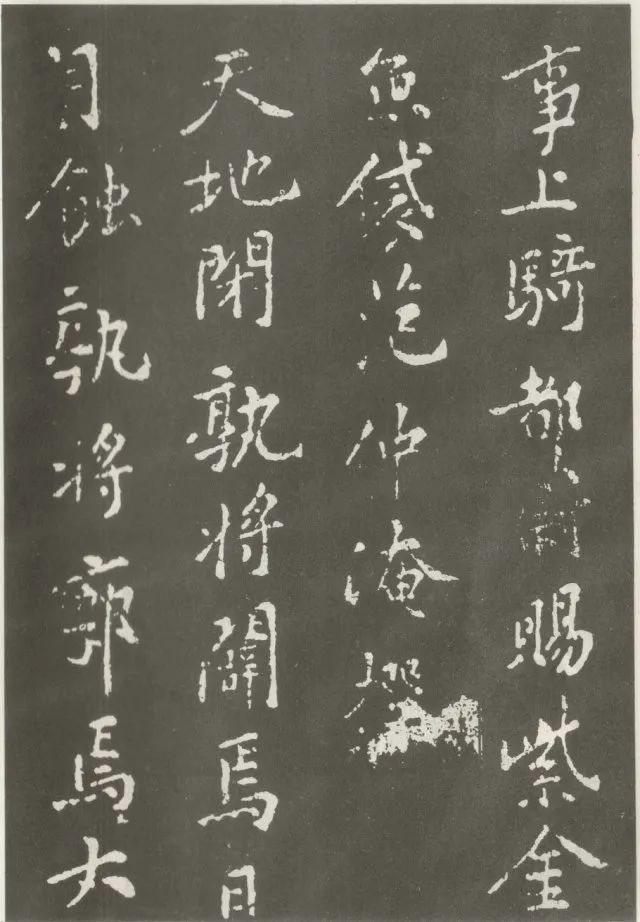 事上騎都尉賜紫金
魚袋范仲淹撰
天地閉孰將闢焉日
月蝕孰將廓焉大